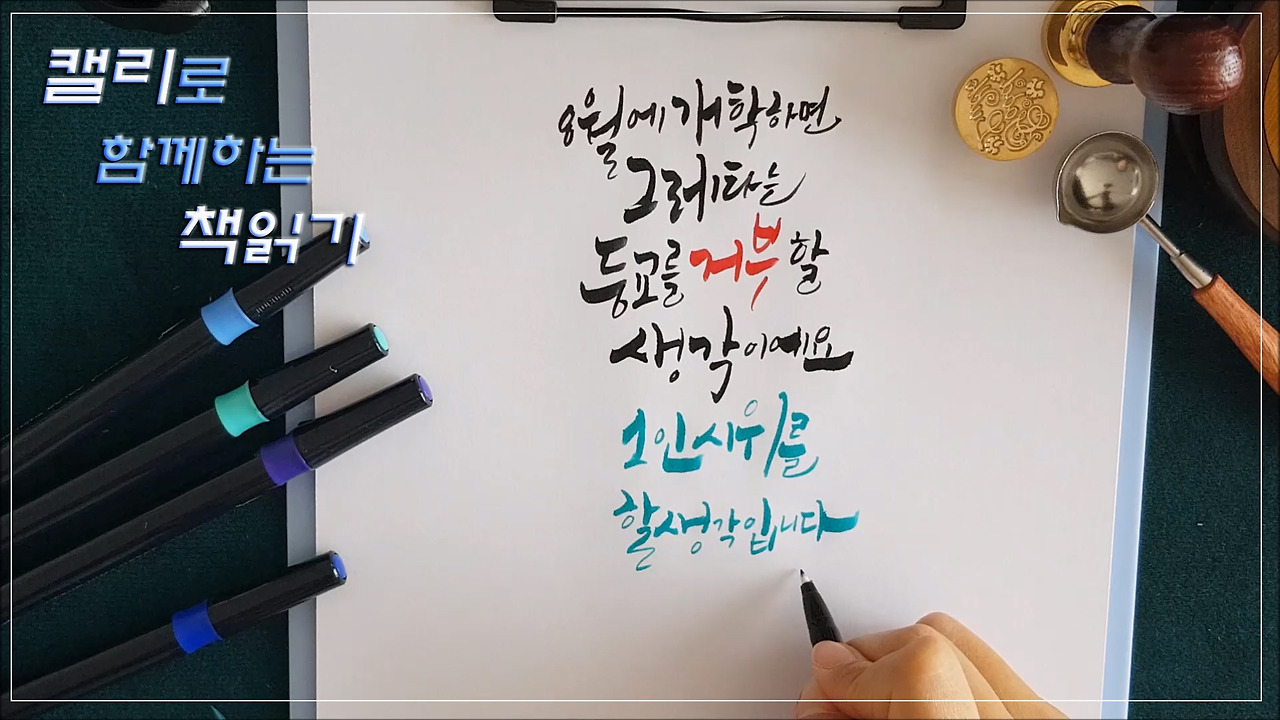 캘리로
함께하는
책읽기
8월에 개학하면
그레타는
등교를 거부할
생각이에요
1인시위를
할 생각입니다